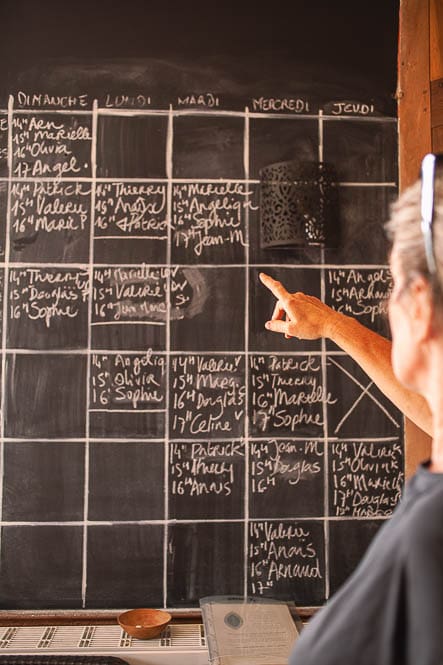 DIMANCHE LUNDI MARDI MERCREDI JEUDI
14H Arn
15H Marielle
16H Olivia
17H Angel
14H Patrick
15H Valery
16H Marie
14H Thierry
15H
16H Patrick
14H Marielle
15H Angeliq
16H Sophie
17H Jean-M
14H Thierry
15H Douglas
16H Sophie
14H Marielle
15H Valerie
16H Jean Marc
14H Angel
15H Arnaud
16H
14H Angelia
15H Olivia
16H Sophie
14H Valery
15H Marg
16H Douglas
17H Celine
14H Patrick
15H Thierry
16H Marielle
17H Sophie
14H Patrick
15H Thierry
16H Annis
14H Jean-M
15H Douglas
16H
14H Valerie
15H Olivia
16H Marielle
17H Douglas
14H Valerie
15H Anaïs
16H Arnaud
17H